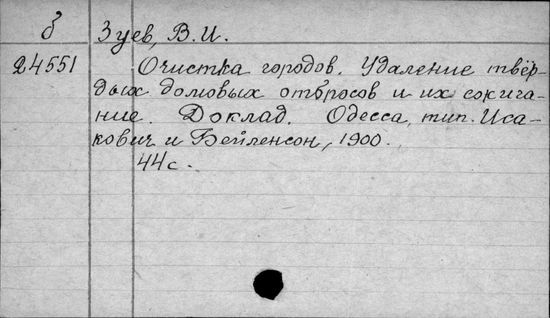 б Зуев, В.И.
24551 Очистка городов. Удаление твёр-
дых домовых отбросов и их сжига-
ние. Доклад. Одесса, тип. Иса-
кович и Бейленсон, 1900.
44 с.